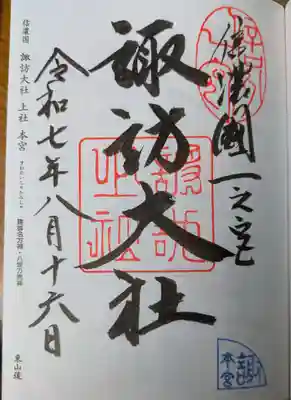 信濃國一之宮
諏訪大社
令和七年八月十六日
信濃国 諏訪大社 上社 本宮
東山道
諏訪
本宮